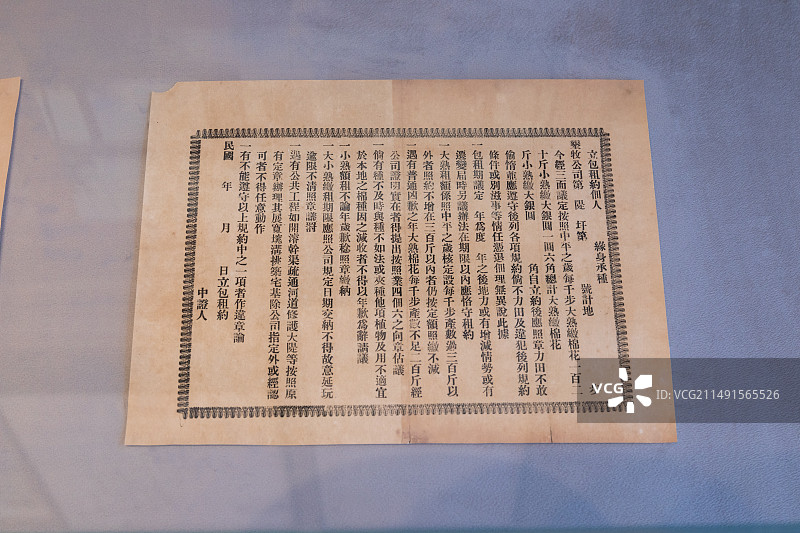 立包租約佃人　　　緣身承種
墾牧公司第　堤　圩第　　　號計地
今經三面議定按照中平之歲每千步大熟繳棉花一百二
十斤小熟繳大銀圓一圓六角總計大熟繳棉花
斤小熟繳大銀圓　　　角自立約後應照章力田不敢
偷惰並應遵守後列各項規約倘不力田及違犯後列規約
條件或別滋事等情任憑退佃理無異說此據
一包租期議定　年為度　年之後地力或有增減情勢或有
遷變屆時另議辦法在期限以內應恪守租約
一大熟租額係照中平之歲核定設每千步產數熟三百斤以
外者照約不增在三百斤以內者仍按定額照繳不減
一遇有普通凶歉之年大熟棉花每千步產數不足二百斤經
公司證明實在者得提出按照業四佃六之向章估議
一倘有種不及時與種不如法或夾種他項植物及用不適宜
於本地之棉種因之減收者不得以年歉為辭請議
一小熟額租不論年歲歉稔照章繳納
一大小熟繳租期限應照公司規定日期交納不得故意延玩
逾限不清照章議罰
一遇有公共工程如開濬幹渠疏通河道修護大隄等按照原
有定章辦理其展寬墭溝排築宅基除公司指定外或經認
可者不得任意動作
一有不能遵守以上規約中之一項者作違章論
民國　年　月　日立包租約
中證人
VCG
VCG.COM
ID: VCG211491565526